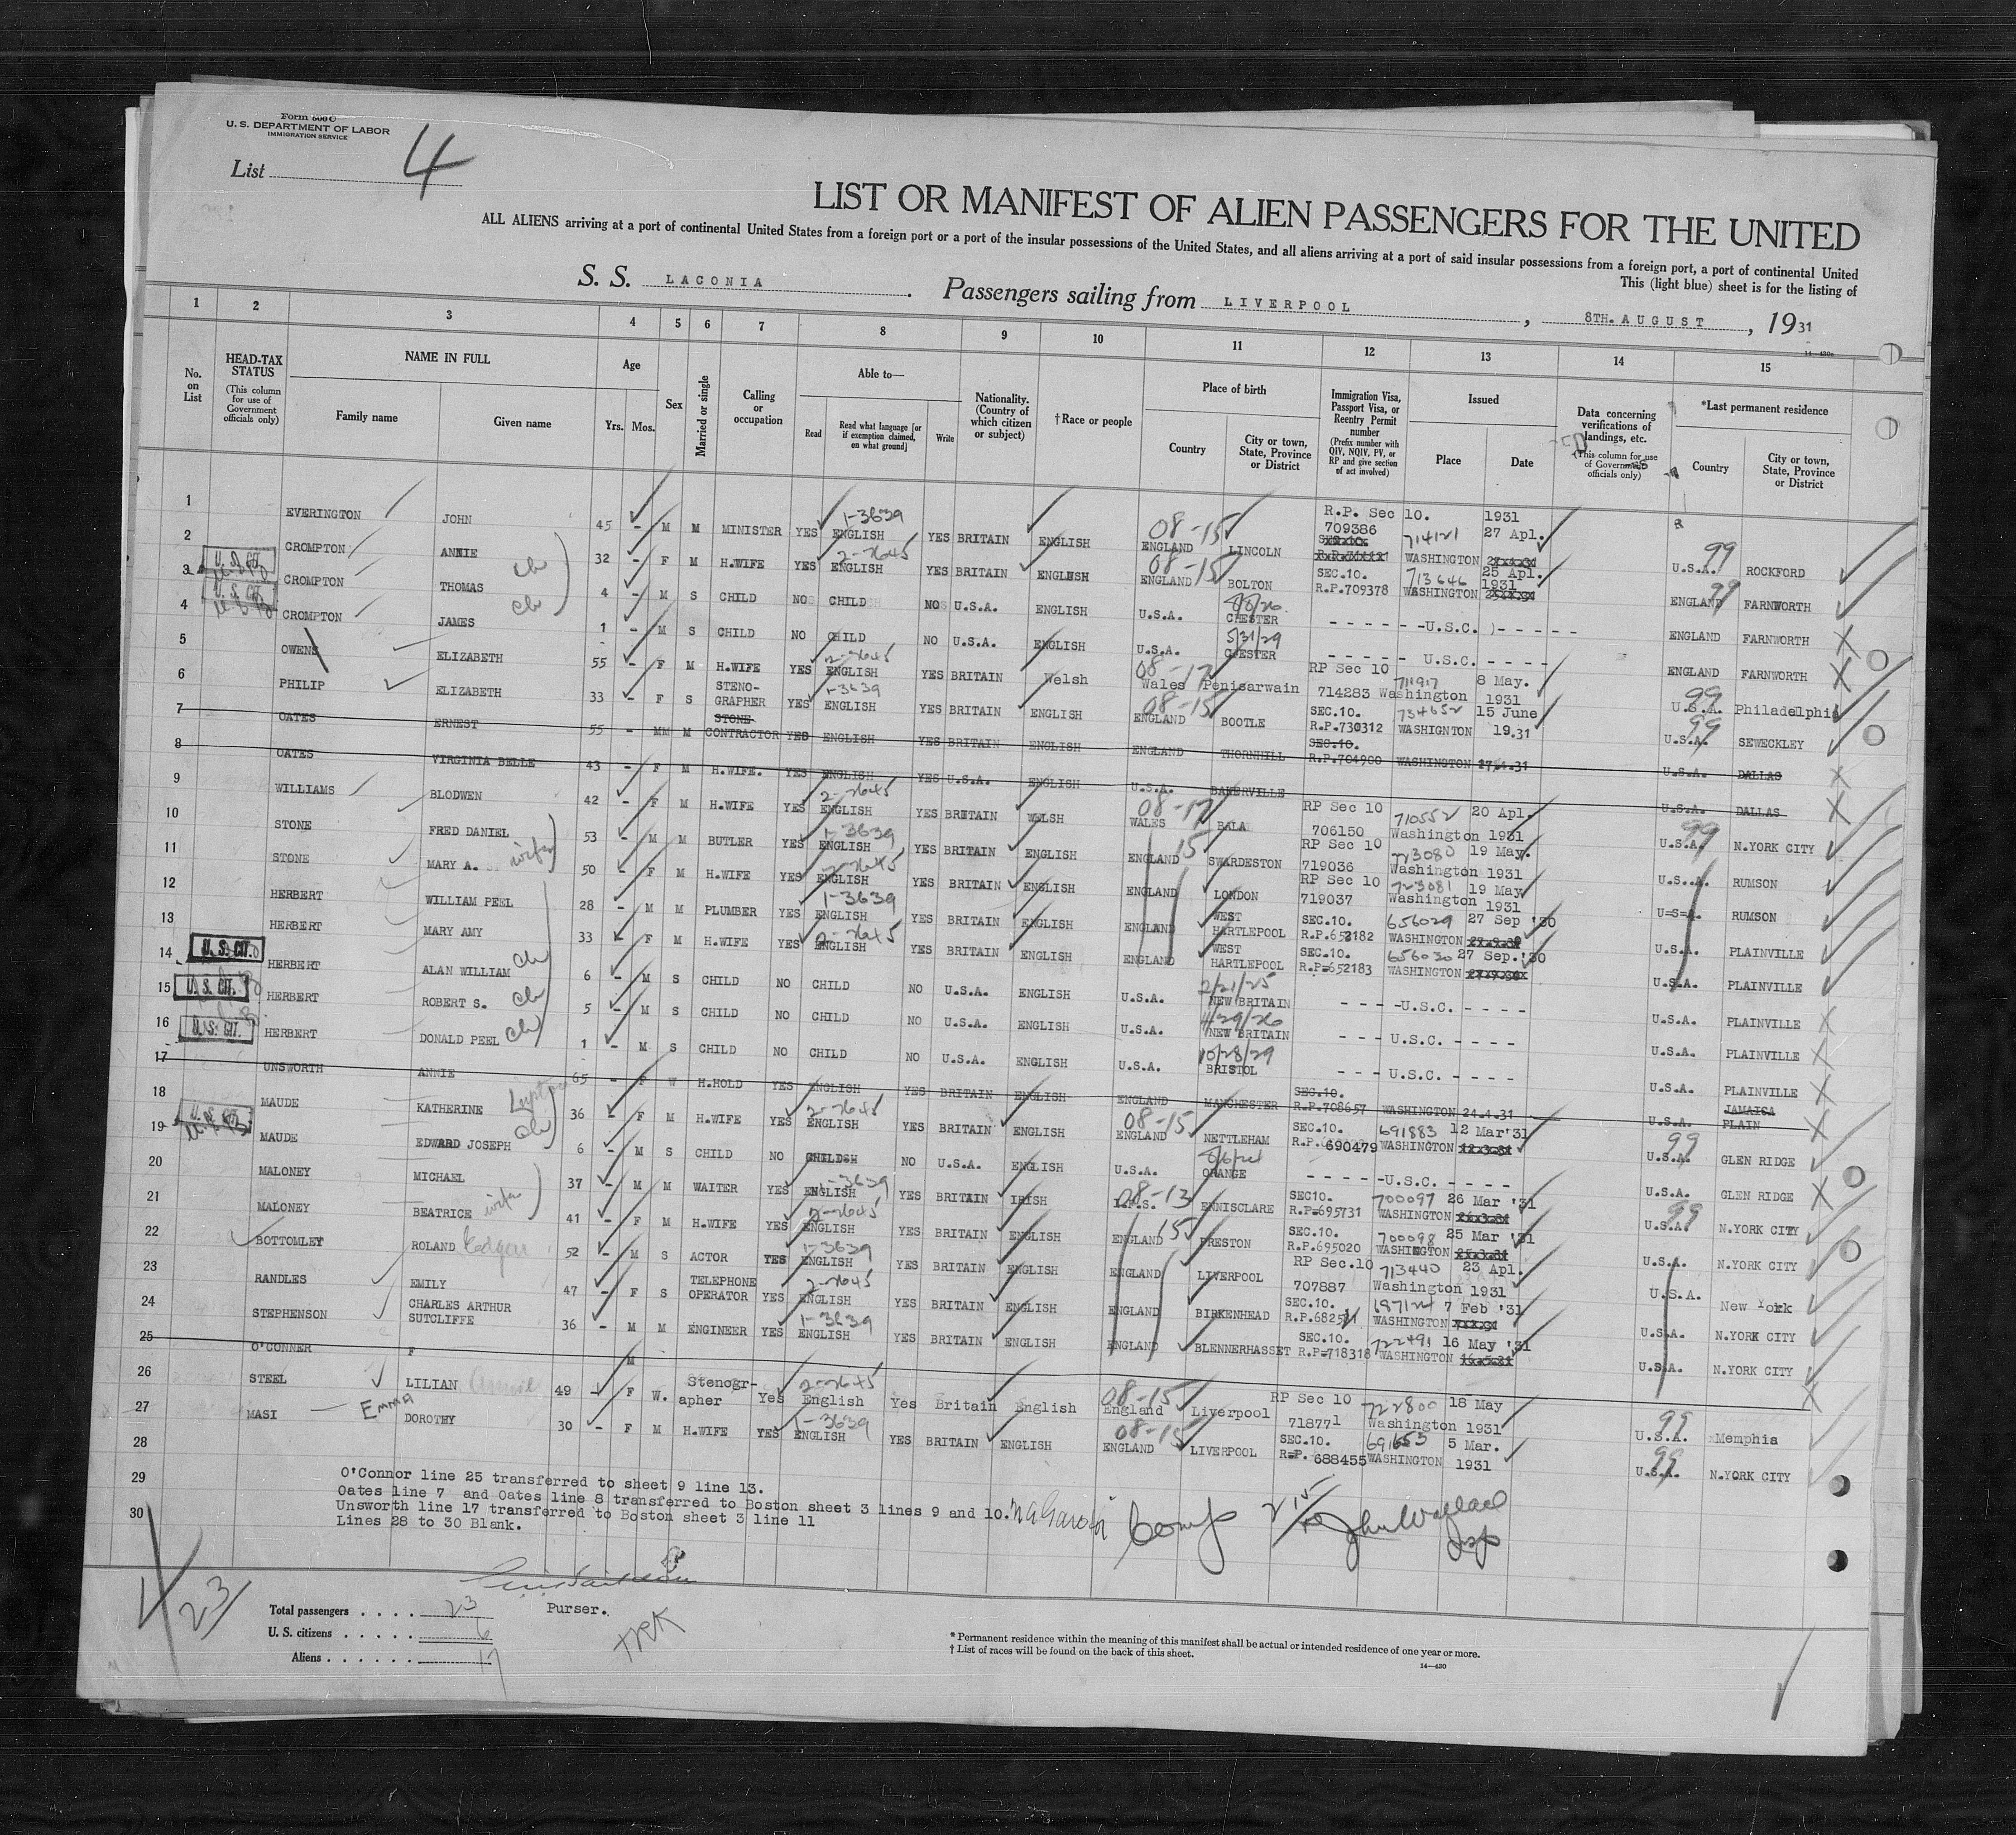 Form 600 C
U. S. DEPARTMENT OF LABOR
IMMIGRATION SERVICE
List 4
LIST OR MANIFEST OF ALIEN PASSENGERS FOR THE UNITED
ALL ALIENS arriving at a port of continental United States from a foreign port or a port of the insular possessions of the United States, and all aliens arriving at a port of said insular possessions from a foreign port, a port of continental United
This (light blue) sheet is for the listing of
S. S. LACONIA. Passengers sailing from LIVERPOOL, 8TH. AUGUST, 1931
14—430a
1 2 3 4 5 6 7 8 9 10 11 12 13 14 15
No. on List
HEAD-TAX STATUS (This column for use of Government officials only)
NAME IN FULL Family name Given name
Age Yrs. Mos.
Sex
Married or single
Calling or occupation
Able to— Read Read what language [or if exemption claimed, on what ground] Write
Nationality. (Country of which citizen or subject)
† Race or people
Place of birth Country City or town, State, Province or District
Immigration Visa, Passport Visa, or Reentry Permit number (Prefix number with QIV, NQIV, PV, or RP and give section of act involved)
Issued Place Date
Data concerning verifications of landings, etc. (This column for use of Government officials only)
*Last permanent residence Country City or town, State, Province or District
1 EVERINGTON JOHN 45 - M M MINISTER YES 1-3639 ENGLISH YES BRITAIN ENGLISH 08-15 ENGLAND LINCOLN R.P. Sec 10. 709386 714121 WASHINGTON 1931 27 Apl. 99 U.S.A. ROCKFORD
2 CROMPTON ANNIE 32 - F M H.WIFE YES 2-7645 ENGLISH YES BRITAIN ENGLISH 08-15 ENGLAND BOLTON SEC.10. R.P.709378 713646 WASHINGTON 25 Apl. 1931 99 ENGLAND FARNWORTH
3 U.S. CIT. CROMPTON THOMAS ch 4 - M S CHILD NO CHILD NO U.S.A. ENGLISH U.S.A. CHESTER - - - - - -U.S.C. - - - - - ENGLAND FARNWORTH
4 U.S. CIT. CROMPTON JAMES ch 1 - M S CHILD NO CHILD NO U.S.A. ENGLISH U.S.A. 5/31/29 CHESTER - - - - - U.S.C. - - - - ENGLAND FARNWORTH
5 OWENS ELIZABETH 55 - F M H.WIFE YES 2-7645 ENGLISH YES BRITAIN Welsh 08-17 Wales Penisarwain RP Sec 10 714283 711917 Washington 8 May. 1931 99 U.S.A. Philadelphia
6 PHILIP ELIZABETH 33 - F S STENO-GRAPHER YES 1-3639 ENGLISH YES BRITAIN ENGLISH 08-15 ENGLAND BOOTLE SEC.10. R.P.730312 734652 WASHIGNTON 15 June 19.31 99 U.S.A. SEWECKLEY
7 OATES ERNEST 55 - M M STONE CONTRACTOR YES ENGLISH YES BRITAIN ENGLISH ENGLAND THORNHILL SEC.10. R.P.704900 WASHINGTON U.S.A. DALLAS
8 OATES VIRGINIA BELLE 43 - F M H.WIFE. YES ENGLISH YES U.S.A. ENGLISH U.S.A. BAKERVILLE U.S.A. DALLAS
9 WILLIAMS BLODWEN 42 - F M H.WIFE YES 2-7645 ENGLISH YES BRITAIN WELSH 08-17 WALES BALA RP Sec 10 706150 710552 Washington 20 Apl. 1931 99 U.S.A. N.YORK CITY
10 STONE FRED DANIEL 53 - M M BUTLER YES 1-3639 ENGLISH YES BRITAIN ENGLISH 15 ENGLAND SWARDESTON RP Sec 10 719036 723080 Washington 19 May. 1931 U.S.A. RUMSON
11 STONE MARY A. wife 50 - F M H.WIFE YES 2-7645 ENGLISH YES BRITAIN ENGLISH ENGLAND LONDON RP Sec 10 719037 723081 Washington 19 May 1931 U=S=A. RUMSON
12 HERBERT WILLIAM PEEL 28 - M M PLUMBER YES 1-3639 ENGLISH YES BRITAIN ENGLISH ENGLAND WEST HARTLEPOOL SEC.10. R.P.652182 656029 WASHINGTON 27 Sep '30 U.S.A. PLAINVILLE
13 HERBERT MARY AMY 33 - F M H.WIFE YES 2-7645 ENGLISH YES BRITAIN ENGLISH ENGLAND WEST HARTLEPOOL SEC.10. R.P=652183 656030 WASHINGTON 27 Sep.'30 U.S.A. PLAINVILLE
14 U.S. CIT. HERBERT ALAN WILLIAM ch 6 - M S CHILD NO CHILD NO U.S.A. ENGLISH U.S.A. 2/21/25 NEW BRITAIN - - - -U.S.C. - - - - U.S.A. PLAINVILLE
15 U.S. CIT. HERBERT ROBERT S. ch 5 - M S CHILD NO CHILD NO U.S.A. ENGLISH U.S.A. 4/29/26 NEW BRITAIN - - - U.S.C. - - - - U.S.A. PLAINVILLE
16 U.S. CIT. HERBERT DONALD PEEL ch 1 - M S CHILD NO CHILD NO U.S.A. ENGLISH U.S.A. 10/28/29 BRISTOL - - - U.S.C. - - - - U.S.A. PLAINVILLE
17 UNSWORTH ANNIE 65 - F W H.HOLD YES ENGLISH YES BRITAIN ENGLISH ENGLAND MANCHESTER SEC.10. R.P.708657 WASHINGTON 24.4.31 U.S.A. JAMAICA PLAIN
18 MAUDE KATHERINE 36 - F M H.WIFE YES 2-7645 ENGLISH YES BRITAIN ENGLISH 08-15 ENGLAND NETTLEHAM SEC.10. R.P. 690479 691883 WASHINGTON 12 Mar'31 99 U.S.A. GLEN RIDGE
19 U.S. CIT. MAUDE EDWARD JOSEPH ch 6 - M S CHILD NO CHILD NO U.S.A. ENGLISH U.S.A. ORANGE - - - - -U.S.C. - - - - U.S.A. GLEN RIDGE
20 MALONEY MICHAEL 37 - M M WAITER YES 1-3639 ENGLISH YES BRITAIN IRISH 08-13 ENNISCLARE SEC10. R.P=695731 700097 WASHINGTON 26 Mar '31 99 U.S.A. N.YORK CITY
21 MALONEY BEATRICE wife 41 - F M H.WIFE YES 2-7645 ENGLISH YES BRITAIN ENGLISH 15 ENGLAND PRESTON SEC.10. R.P.695020 700098 WASHINGTON 25 Mar '31 U.S.A. N.YORK CITY
22 BOTTOMLEY ROLAND Edgar 52 - M S ACTOR YES 1-3639 ENGLISH YES BRITAIN ENGLISH ENGLAND LIVERPOOL RP Sec.10 707887 713440 Washington 23 Apl. 1931 U.S.A. New York
23 RANDLES EMILY 47 - F S TELEPHONE OPERATOR YES 2-7645 ENGLISH YES BRITAIN ENGLISH ENGLAND BIRKENHEAD SEC.10. 697124 WASHINGTON 7 Feb '31 U.S.A. N.YORK CITY
24 STEPHENSON CHARLES ARTHUR SUTCLIFFE 36 - M M ENGINEER YES 1-3639 ENGLISH YES BRITAIN ENGLISH ENGLAND BLENNERHASSET SEC.10. R.P=718318 722491 WASHINGTON 16 May '31 U.S.A. N.YORK CITY
25 O'CONNER F M
26 STEEL LILIAN 49 - F W. Stenogr-apher Yes 2-7645 English Yes Britain English 08-15 England Liverpool RP Sec 10 718771 722800 Washington 18 May 1931 99 U.S.A. Memphis
27 MASI Emma DOROTHY 30 - F M H.WIFE YES 1-3639 ENGLISH YES BRITAIN ENGLISH 08-15 ENGLAND LIVERPOOL SEC.10. R=P. 688455 691653 WASHINGTON 5 Mar. 1931 99 U.S.A. N.YORK CITY
28
29 O'Connor line 25 transferred to sheet 9 line 13.
Oates line 7 and Oates line 8 transferred to Boston sheet 3 lines 9 and 10.
30 Unsworth line 17 transferred to Boston sheet 3 line 11
Lines 28 to 30 Blank.
Comp John Wallace Insp
23
Total passengers . . . . 23
U. S. citizens . . . . . 6
Aliens . . . . . . 17
Purser.
* Permanent residence within the meaning of this manifest shall be actual or intended residence of one year or more.
† List of races will be found on the back of this sheet.
14—430